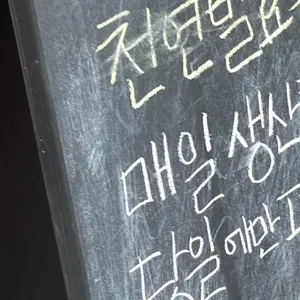 천연발효
매일 생산
당일에만